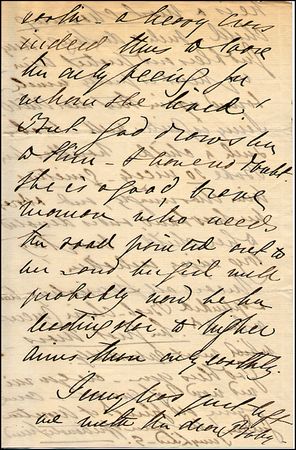 earth - a heavy cross
indeed thus to lose
the only being for
whom she lived.
But God draws her
to Him - I have no doubt.
she is a good, brave
woman, who needs
the road pointed out to
her - and the girl will
probably now be her
leading star to higher
aims than any earthly.
has just left
me with the dear Baby.